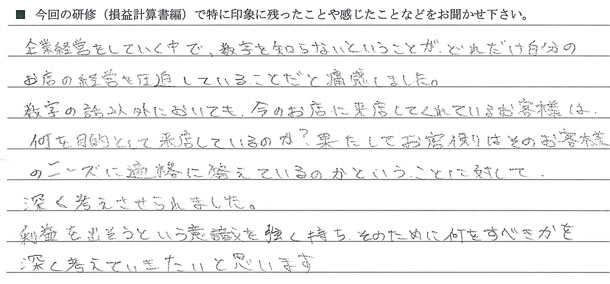 ■ 今回の研修（損益計算書編）で特に印象に残ったことや感じたことなどをお聞かせ下さい。
企業経営をしていく中で、数字を知らないということが、どれだけ自分の
お店の経営を圧迫していることだと痛感しました。
数字の話以外においても、今のお店に来店してくれているお客様は、
何を目的として来店しているのか？果たしてお店側はそのお客様
のニーズに適格に答えているのかということに対して、
深く考えさせられました。
利益を出そうという意識を強く持ち、そのために何をすべきかを
深く考えていきたいと思います